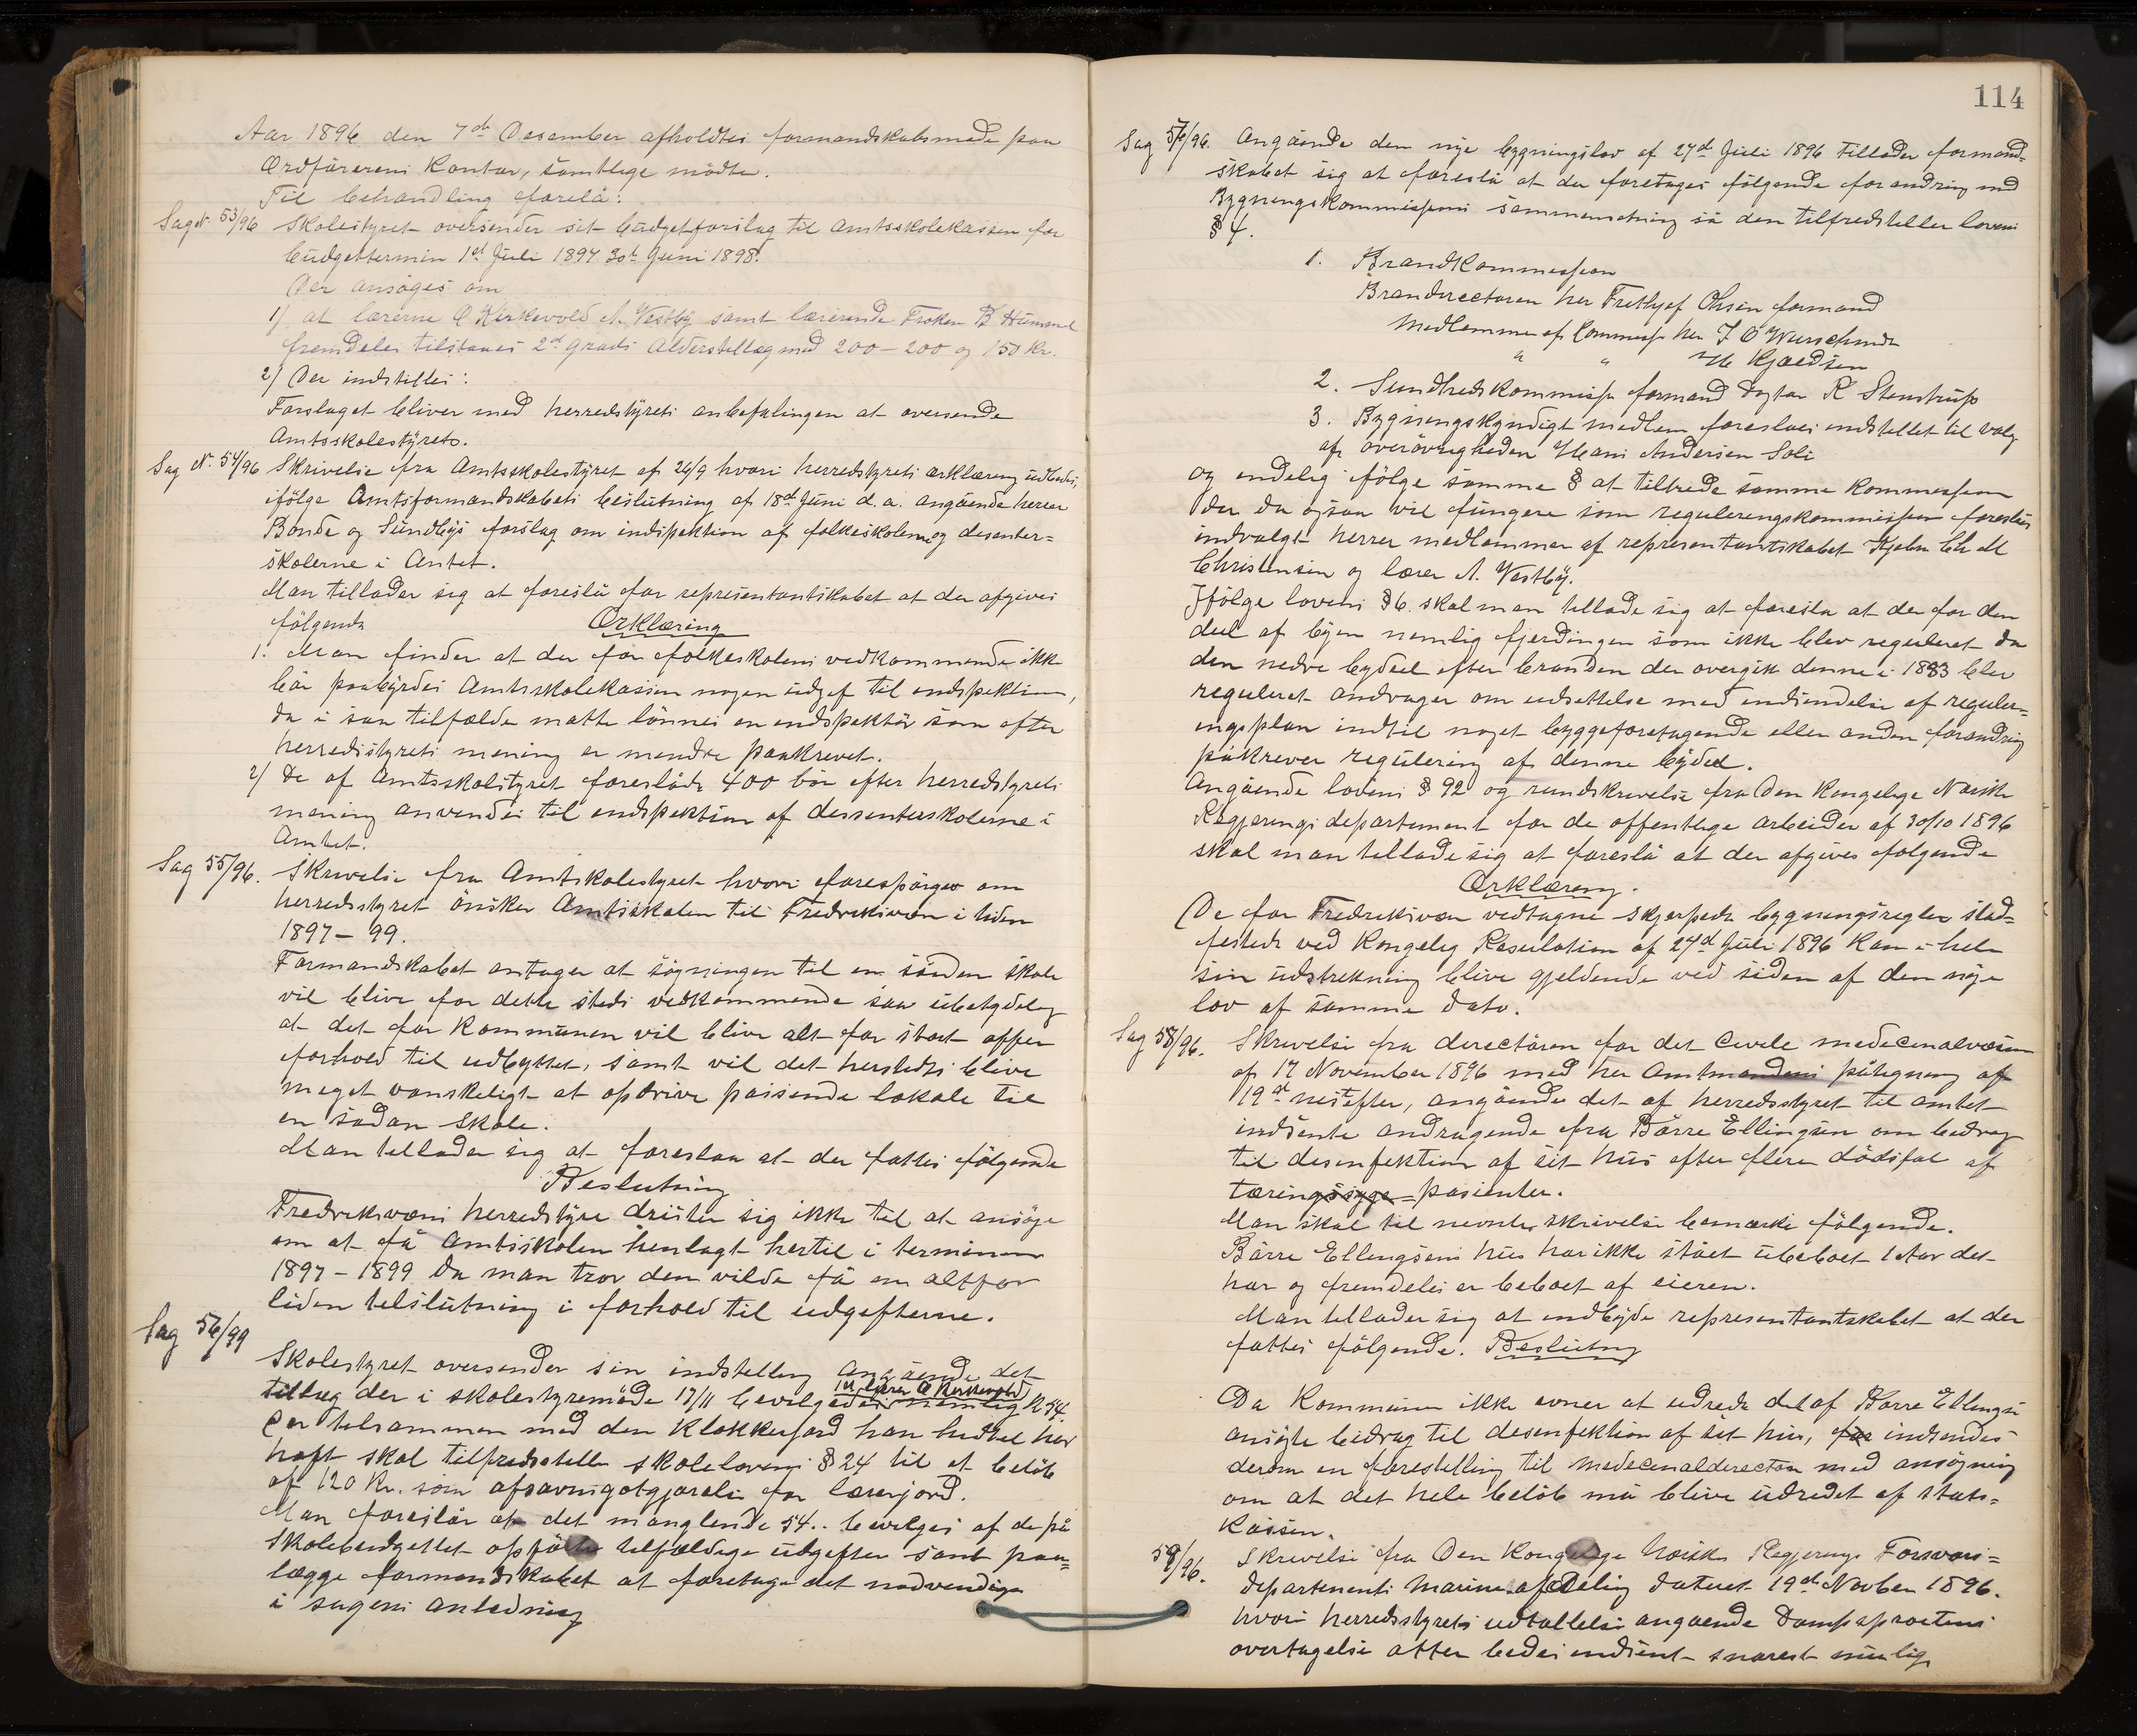 Aar 1896 den 7de Desember afholdtes formandskabsmøde paa
Ordførerens Kontor, samtlige mødte.
Til behandling forelå:
Sag No 53/96 Skolestyret oversender sit budgetforslag til amtsskolekassen for
budgettermin 1st Juli 1897 30te Juni 1898.
Der ansøges om
1) at lærerne O Kirkevold A. Vestby samt lærerinde Frøken B Hummel
fremdeles tilstaaes 2de grads Alderstillæg med 200 - 200 og 150 Kr.
2) Der indstilles:
Forslaget bliver med herredstyrets anbefalingen at oversende
Amtsskolestyret.
Sag No 54/96 Skrivelse fra Amtsskolestyret af 26/9 hvori herredstyrets erklæring udbedes,
ifølge Amtsformandskabets beslutning af 18de Juni d.a. angående herrer
Bonde og Sundbys forslag om indspektion af folkeskolerne og desenter=
skolerne i Amtet.
Man tillader sig at foreslå for representantskabet at der afgives
følgende Erklæring
1. Man finder at der for folkeskolens vedkommende ikke
bør paabyrdes Amtsskolekassen nogen udgift til indspektion,
da i saa tilfælde måtte lønnes en indspektør som efter
herredsstyrets mening er mindre paakrevet.
2) De af Amtsskolestyret foreslåde 400 bør efter herredstyrets
mening anvendes til indspektion af dessenterskolerne i
Amtet.
Sag 55/96. Skrivelse fra Amtskolestyret hvori forespørges om
herredsstyret ønsker Amtsskolen til Fredriksværn i tiden
1897 - 99.
Formandskabet antager at søgningen til en sånden skole
vil blive for dette steds vedkommende saa ubetydelig
at det for Kommunen vil blive alt for stort offer
forhold til udbyttet, samt vil det herstedts blive
meget vanskeligt at opdrive passende lokale til
en sådan skole.
Man tillader sig at foreslaa at der fattes følgende
Beslutning
Fredriksværns herredstyre drister sig ikke til at ansøge
om at få Amtsskolen henlagt hertil i terminen
1897 - 1899 da man tror den vilde få en altfor
liden tilslutning i forhold til udgifterne.
Sag 56/99
Skolestyret oversender sin indstilling angående det
til lærer O Kirkevold
tillæg der i skolestyremøde 17/11 bevilgedes nemlig Kr 54.
der tilsammen med den Klokkerjord han hidtil har
haft skal tilfredsstille skolelovens § 24 til et beløb
af 120 Kr. som afsavnsgotgjørelse for lærerjord.
Man foreslår at det manglende 54.. bevilges af de på
Skolebudgettet opførte tilfældige udgifter samt paa=
lægge formandskabet at foretage det nødvendige
i sagens anledning
114
Sag 57/96. Angående den nye bygningslov af 27de Juli 1896 tillader formand=
skabet sig at foreslå at der foretages følgende forandring med
Bygningskommissjonens sammensetning så den tilfredstiller lovens
§ 4.
1. Brandkommissjon
Branddirectøren her Frithjof Ohsen formand
medlemmer af Commissj her J O Wurschmidt
" " H Kjældsen
2. Sundhedskommissj formand doktor R Stenstrup
3. Bygningskyndigt medlem foreslaes indstillet til valg
af overøvrigheden Hans Andersen Soli
og endelig ifølge samme § at tiltræde samme Kommissjon
der da ogsaa vil fungere som reguleringskommissjon foreslås
indvalgt herrer medlemmer af representantskabet Kjøbm Ch M
Christensen og lærer A. Vestby.
Ifølge lovens § 6. skal man tillade sig at foreslå at der for den
deel af byen nemlig fjerdingen som ikke blev reguleret da
den nedre bydeel efter branden der overgik denne i 1883 blev
reguleret andrager om udsettelse med indsendelse af reguler=
ingsplan indtil noget byggeforetagende eller anden forandring
påkræver regulering af denne bydel.
Angående lovens § 92 og rundskrivelse fra Den Kongelige Norske
Regjerings departement for de offentlige arbeider af 30/10 1896
skal man tillade sig at foreslå at der afgives følgende
Erklæring.
De for Fredriksværn vedtagne skjerpede bygningsregler stad=
festede ved Kongelig Resolution af 27de Juli 1896 kan i hele
sin udstrekning blive gjeldende ved siden af den nye
lov af samme dato.
Sag 58/96. Skrivelse fra directøren for det Civile medicinalvæsen
af 17 November 1896 med her Amtmandens påtegning af
19de nestefter, angående det af herredsstyret til amtet
indsente andragende fra Børre Ellingsen om bidrag
til desinfektion af sit hus efter flere dødsfal af
tæringssyge=pasienter.
Man skal til nevnte skrivelse bemærke følgende.
Børre Ellingsens hus har ikke stået ubeboet 1 Aar det
har og fremdeles er beboet af eieren.
Man tillader sig at indbyde representantskabet at der
fattes følgende. Beslutning
Da Kommunen ikke evner at udrede det af Børre Ellingsen
ansøgte bidrag til desinfektion af sit hus, for indsendes
derom en forestilling til Medicinaldirectøren med ansøgning
om at det hele beløb må blive udredet af stats=
kassen.
59/96. Skrivelse fra Den Kongelige Norske Regjerings Forsvars=
departements Marineafdeling dateret 19de Novber 1896.
hvori herredsstyrets udtallelse angaende Dampsprøitens
overtagelse atter bedes indsent snarest mulig